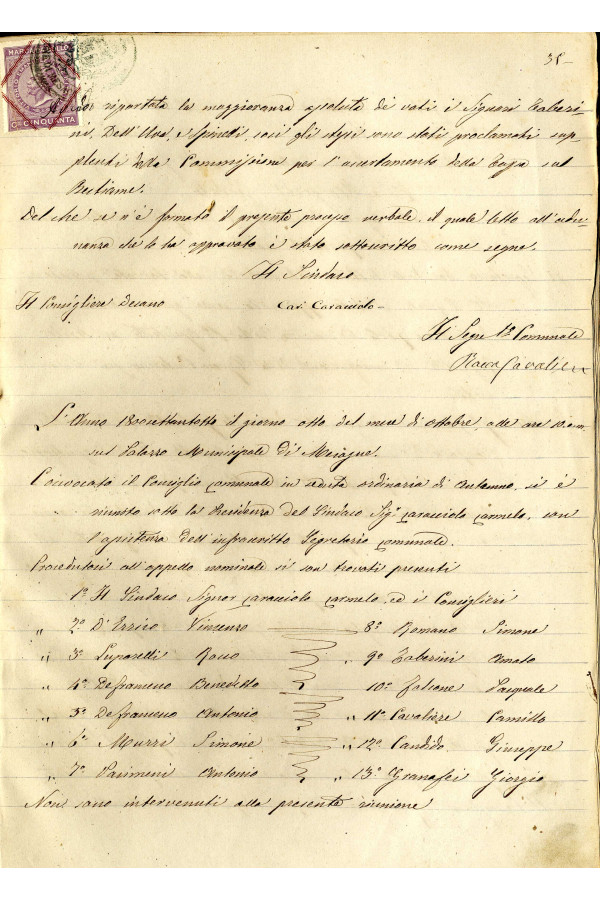 35-
MARCA DA BOLLO
CI CINQUANTA
riportata la maggioranza assoluta di voti i Signori Taberi-
ni, Dell'Uva, Spinelli, così gli stessi sono stati proclamati sup-
plenti della Commissione per l'accertamento della Tassa sul
Bestiame.
Del che se n'è formato il presente processo verbale, il quale letto all'adu-
nanza che lo ha approvato è stato sottoscritto come segue.
Il Sindaco
Il Consigliere Decano Car. Caracciolo-
Il Segr. Comunale
Rocco Cavaliere
L'Anno 1800settantotto il giorno otto del mese di Ottobre, alle ore 10
sul Palazzo Municipale di Mesagne.
Convocato il Consiglio Comunale in seduta ordinaria di Autunno, si è
riunito sotto la Presidenza del Sindaco Sigr Caracciolo Carmelo, con
l'assistenza dell'infrascritto Segretario Comunale.
Procedutosi all'appello nominale si son trovati presenti
1o Il Sindaco Signor Caracciolo Carmelo, ed i Consiglieri
„ 2o D'Errico Vincenzo 8o Romano Simone
„ 3o Luparelli Rocco „ 9o Taberini Amato
„ 4o Defrancesco Benedetto 10o Falcone Pasquale
„ 5o Defrancesco Antonio „ 11o Cavaliere Camillo
„ 6o Murri Simone „ 12o Candido Giuseppe
„ 7o Antonio „ 13o Granafei Giorgio
Non sono intervenuti alla presente riunione